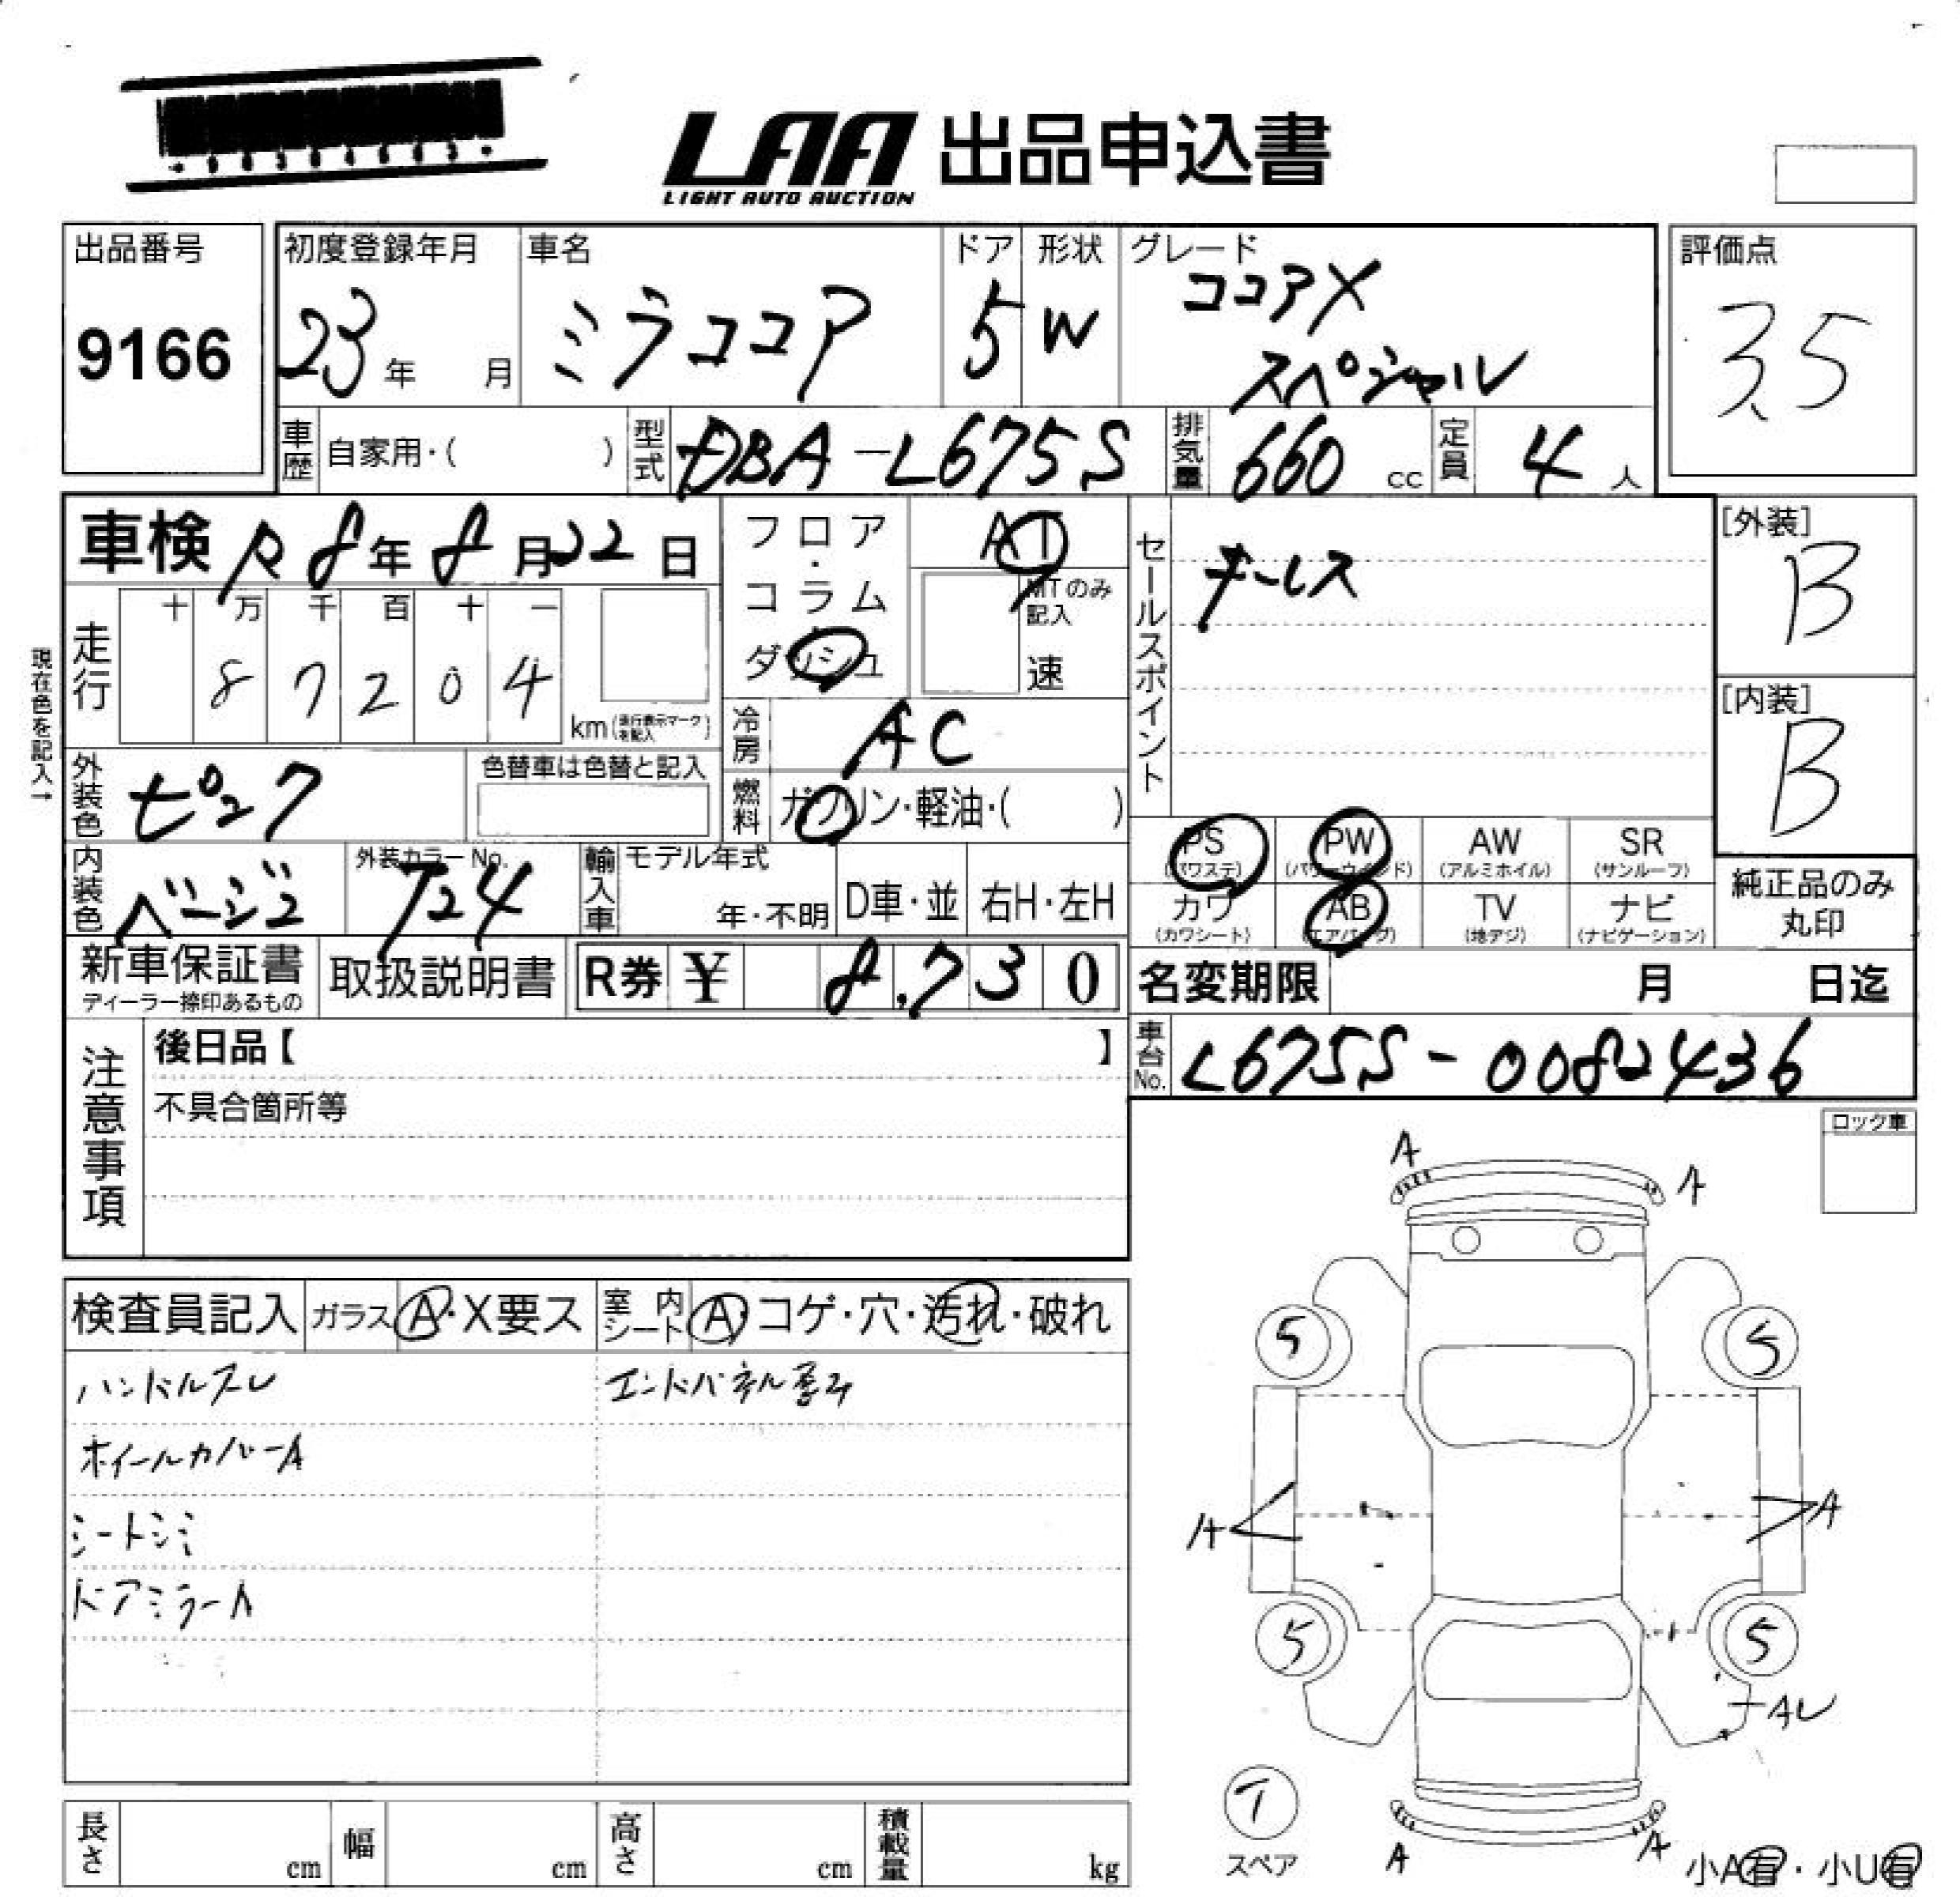 LAA 出品申込書
LIGHT AUTO AUCTION
出品番号
9166
初度登録年月
23年 月
車名
ミラココア
ドア
5
形状
W
グレード
ココアX
スペシャル
評価点
3.5
車歴 自家用・( )
型式 DBA-L675S
排気量 660 cc
定員 4 人
車検 R8年8月22日
フロア・コラム・ダッシュ
AT
MTのみ記入
速
セールスポイント
キーレス
[外装]
B
[内装]
B
現在色を記入→
走行
十 万 千 百 十 一
8 7 2 0 4
km (走行表示マークを記入)
冷房 AC
外装色 ピンク
色替車は色替と記入
燃料 ガソリン・軽油・( )
PS (パワステ)
PW (パワーウインド)
AW (アルミホイル)
SR (サンルーフ)
カワ (カワシート)
AB (エアバッグ)
TV (地デジ)
ナビ (ナビゲーション)
純正品のみ丸印
内装色 ベージュ
外装カラーNo. T24
輸入車 モデル年式 年・不明
D車・並
右H・左H
新車保証書
ディーラー捺印あるもの
取扱説明書
R券 ¥ 8,730
名変期限 月 日迄
車台No. L675S-0082436
注意事項
後日品【 】
不具合箇所等
ロック車
検査員記入
ガラス A・X要ス
室内シート A・コゲ・穴・汚れ・破れ
ハンドルスレ
エンドパネル歪み
ホイールカバーA
シートシミ
ドアミラーA
A A
5 5
A A
5 5
AU
T
スペア
A A
小A有・小U有
長さ cm
幅 cm
高さ cm
積載量 kg